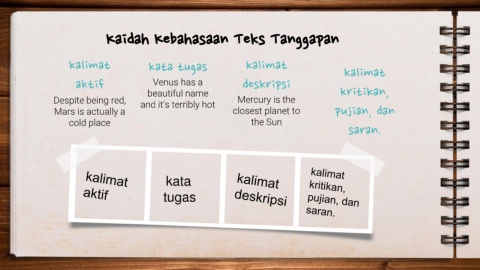 Kaidah Kebahasaan Teks Tanggapan
kalimat
aktif
Despite being red,
Mars is actually a
cold place
kata tugas
Venus has a
beautiful name
and it's terribly hot
kalimat
deskripsi
Mercury is the
closest planet to
the Sun
kalimat
kritikan,
pujian, dan
saran.
kalimat
aktif
kata
tugas
kalimat
deskripsi
kalimat
kritikan,
pujian, dan
saran.